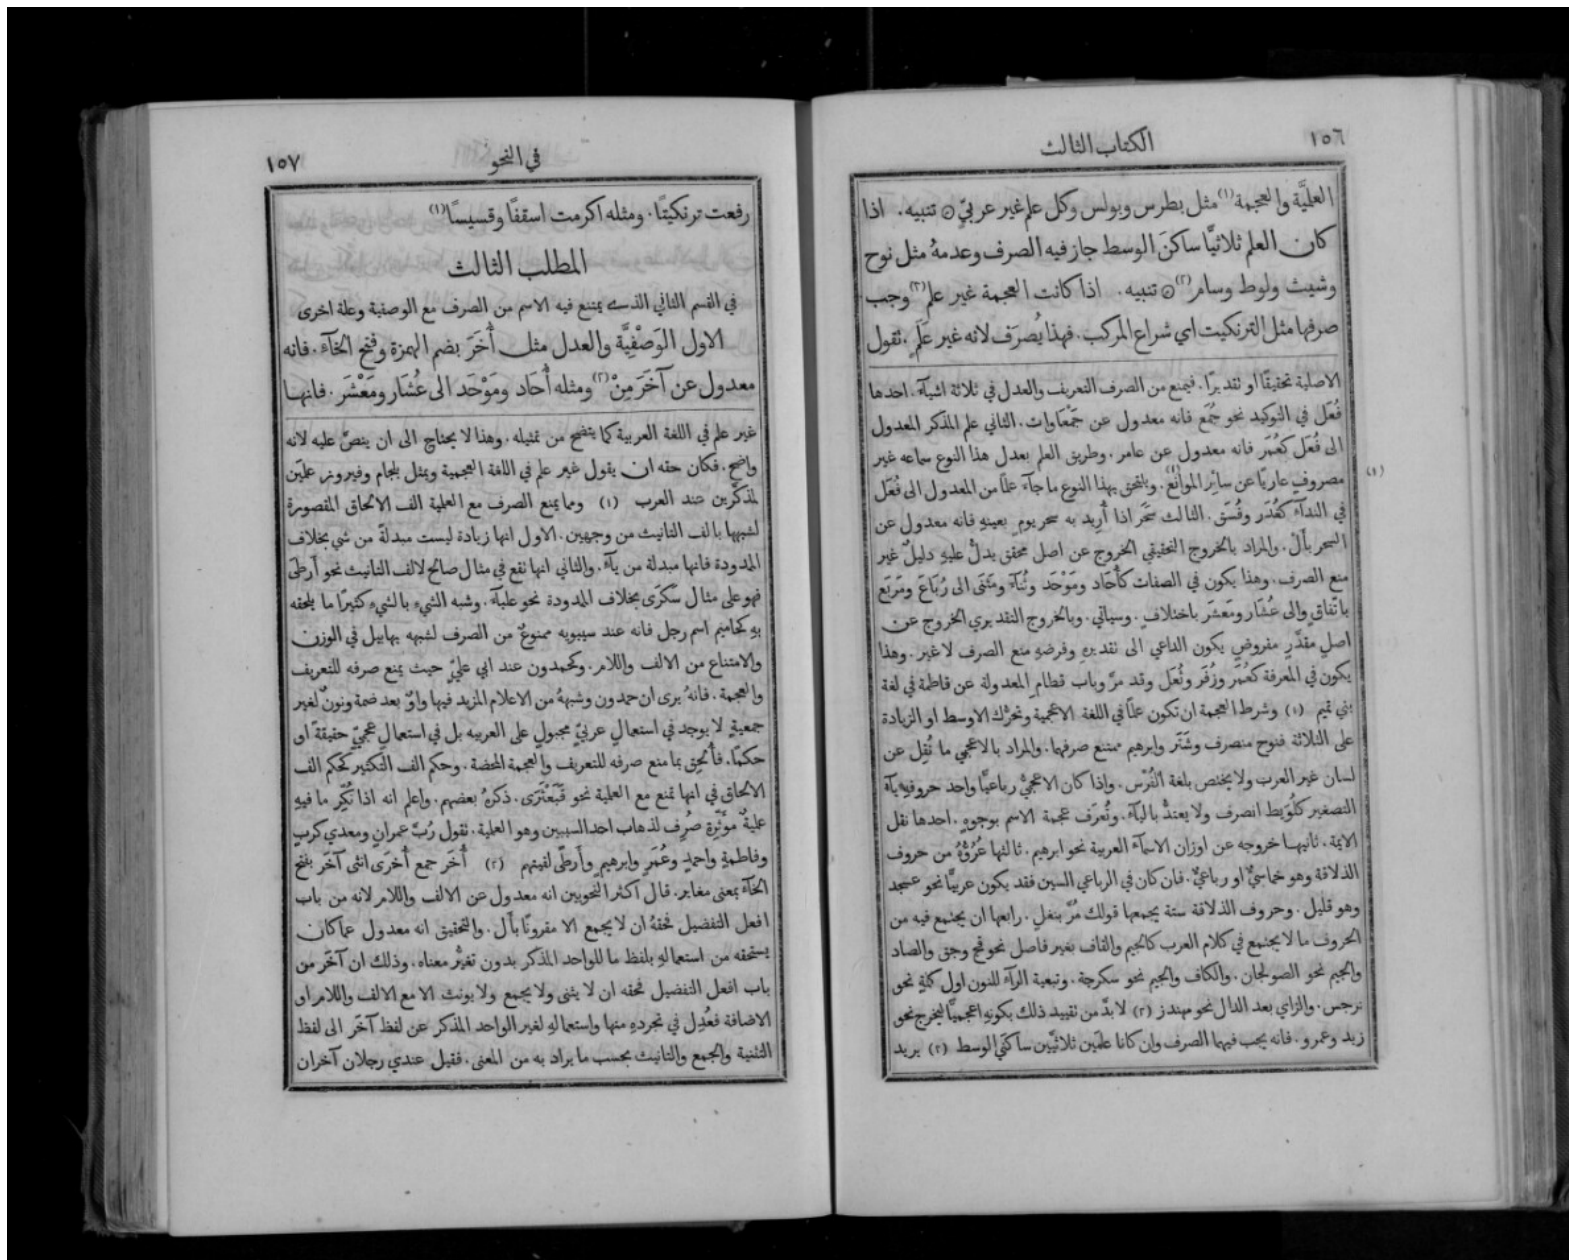 ١٥٦ الكتاب الثالث
العلميَّة والعجمة (١) مثل بطرس وبولس وكل علم غير عربيّ ۞ تنبيه. اذا
كان العلم ثلاثيًّا ساكنَ الوسط جاز فيه الصرف وعدمهُ مثل نوح
وشيث ولوط وسام (٢) ۞ تنبيه. اذا كانت العجمة غير علم (٣) وجب
صرفها مثل الترنكيت اي شراع المركب. فهذا يُصرَف لانه غير عَلَمٍ. تقول
الاصلية تحقيقًا او تقديرًا. فيمنع من الصرف التعريف والعدل في ثلاثة اشيآء. احدها
فُعَل في التوكيد نحو جُمَع فانه معدول عن جَمْعَاوات. الثاني علم المذكر المعدول
الى فُعَل كعُمَرَ فانه معدول عن عامر. وطريق العلم بعدل هذا النوع سماعه غير
مصروفٍ عاريًا عن سائر الموانع. ويلتحق بهذا النوع ما جآء علمًا من المعدول الى فُعَل
في الندآء كغُدَر وفُسَق. الثالث سَحَر اذا أُريد به سحر يومٍ بعينهِ فانه معدول عن
السحر بأَلْ. والمراد بالخروج التحقيقي الخروج عن اصل محقق يدلُّ عليهِ دليلٌ غير
منع الصرف. وهذا يكون في الصفات كأُحَاد ومَوْحَد وثُنَآءَ ومَثْنَى الى رُبَاعَ ومَرْبَع
باتفاقٍ والى عُشَار ومَعشَر باختلافٍ. وسيأتي. وبالخروج التقديري الخروج عن
اصلٍ مقدَّرٍ مفروضٍ يكون الداعي الى تقديرهِ وفرضهِ منع الصرف لا غير. وهذا
يكون في المعرفة كعُمَر وزُفَر وثُعَل وقد مرَّ وباب قطامِ المعدولة عن فاطمة في لغة
بني تميم (١) وشرط العجمة ان تكون علمًا في اللغة الاعجمية وتحرُّك الاوسط او الزيادة
على الثلاثة فنوح منصرف وشَتَر وابرهيم ممتنع صرفهما. والمراد بالاعجمي ما نُقِل عن
لسان غير العرب ولا يختص بلغة الفُرْس. واذا كان الاعجميُّ رباعيًّا واحد حروفهِ يآء
التصغير كلُوَيط انصرف ولا يعتدُّ باليآء. وتُعرَف عجمة الاسم بوجوهٍ. احدها نقل
الايمة. ثانيها خروجه عن اوزان الاسمآء العربية نحو ابرهيم. ثالثها عُرُوُّهُ من حروف
الذلاقة وهو خماسيٌّ او رباعيٌّ. فان كان في الرباعي السين فقد يكون عربيًّا نحو عسجد
وهو قليل. وحروف الذلاقة ستة يجمعها قولك مُرْ بنفلٍ. رابعها ان يجتمع فيه من
الحروف ما لا يجتمع في كلام العرب كالجيم والقاف بغير فاصل نحو قج وجق والصاد
والجيم نحو الصولجان. والكاف والجيم نحو سكرجة. وتبعية الرآء للنون اول كلمةٍ نحو
نرجس. والزاي بعد الدال نحو مهندز (٢) لا بدَّ من تقييد ذلك بكونهِ اعجميًّا ليخرج نحو
زيد وعمرو. فانه يجب فيهما الصرف وان كانا علمَين ثلاثيَّين ساكنَي الوسط (٣) يريد
في النحو ١٥٧
رفعت ترنكيتًا. ومثله اكرمت اسقفًا وقسيسًا (١)
المطلب الثالث
في القسم الثاني الذي يمتنع فيه الاسم من الصرف مع الوصفية وعلة اخرى
الاول الوَصْفِيَّة والعدل مثل أُخَرَ بضم الهمزة وفتح الخآء. فانه
معدول عن آخَرَ مِنْ (٢) ومثله أُحَاد ومَوْحَد الى عُشَار ومَعْشَر. فانها
غير علم في اللغة العربية كما يتضح من تمثيله. وهذا لا يحتاج الى ان ينصَّ عليه لانه
واضح. فكان حقه ان يقول غير علم في اللغة العجمية ويمثل بلجام وفيروز علمَين
لمذكَّرين عند العرب (١) ومما يمنع الصرف مع العلمية الف الالحاق المقصورة
لشبهها بالف التانيث من وجهين. الاول انها زيادة ليست مبدلة من شي بخلاف
الممدودة فانها مبدلة من يآء. والثاني انها تقع في مثال صالح لالف التانيث نحو أَرطَى
فهو على مثال سَكْرَى بخلاف الممدودة نحو علبآء. وشبه الشيء بالشيء كثيرًا ما يلحقه
بهِ كحاميم اسم رجل فانه عند سيبويه ممنوعٌ من الصرف لشبهه بهابيل في الوزن
والامتناع من الالف واللام. وكحمدون عند ابي عليٍّ حيث يمنع صرفه للتعريف
والعجمة. فانهُ يرى ان حمدون وشبههُ من الاعلام المزيد فيها واوٌ بعد ضمة ونونٌ لغير
جمعيةٍ لا يوجد في استعمالِ عربيٍّ مجبولٍ على العربيه بل في استعمال عجميٍّ حقيقةً او
حكمًا. فأُلحِق بما منع صرفه للتعريف والعجمة المحضة. وحكم الف التكثير كحكم الف
الالحاق في انها تمنع مع العلمية نحو قَبَعْثَرَى. ذكرهُ بعضهم. واعلم انه اذا نُكِّر ما فيهِ
علميةٌ مؤَثِّرة صُرِف لذهاب احد السببين وهو العلمية. تقول رُبَّ عمرانٍ ومعدي كربٍ
وفاطمةٍ واحمدٍ وعُمَرٍ وابرهيمٍ وأَرطًى لقيتهم (٢) أُخَر جمع أُخرَى انثى آخَر بفتح
الخآء بمعنى مغاير. قال اكثر النحويين انه معدول عن الالف واللام لانه من باب
افعل التفضيل فحقهُ ان لا يجمع الا مقرونًا بأَل. والتحقيق انه معدول عما كان
يستحقه من استعمالهِ بلفظ ما للواحد المذكر بدون تغيُّر معناه. وذلك ان آخَر من
باب افعل التفضيل فحقه ان لا يثنى ولا يجمع ولا يونث الا مع الالف واللام او
الاضافة فعُدِل في تجردهِ منها واستعمالهِ لغير الواحد المذكر عن لفظ آخَر الى لفظ
التثنية والجمع والتانيث بحسب ما يراد به من المعنى. فقيل عندي رجلان آخران